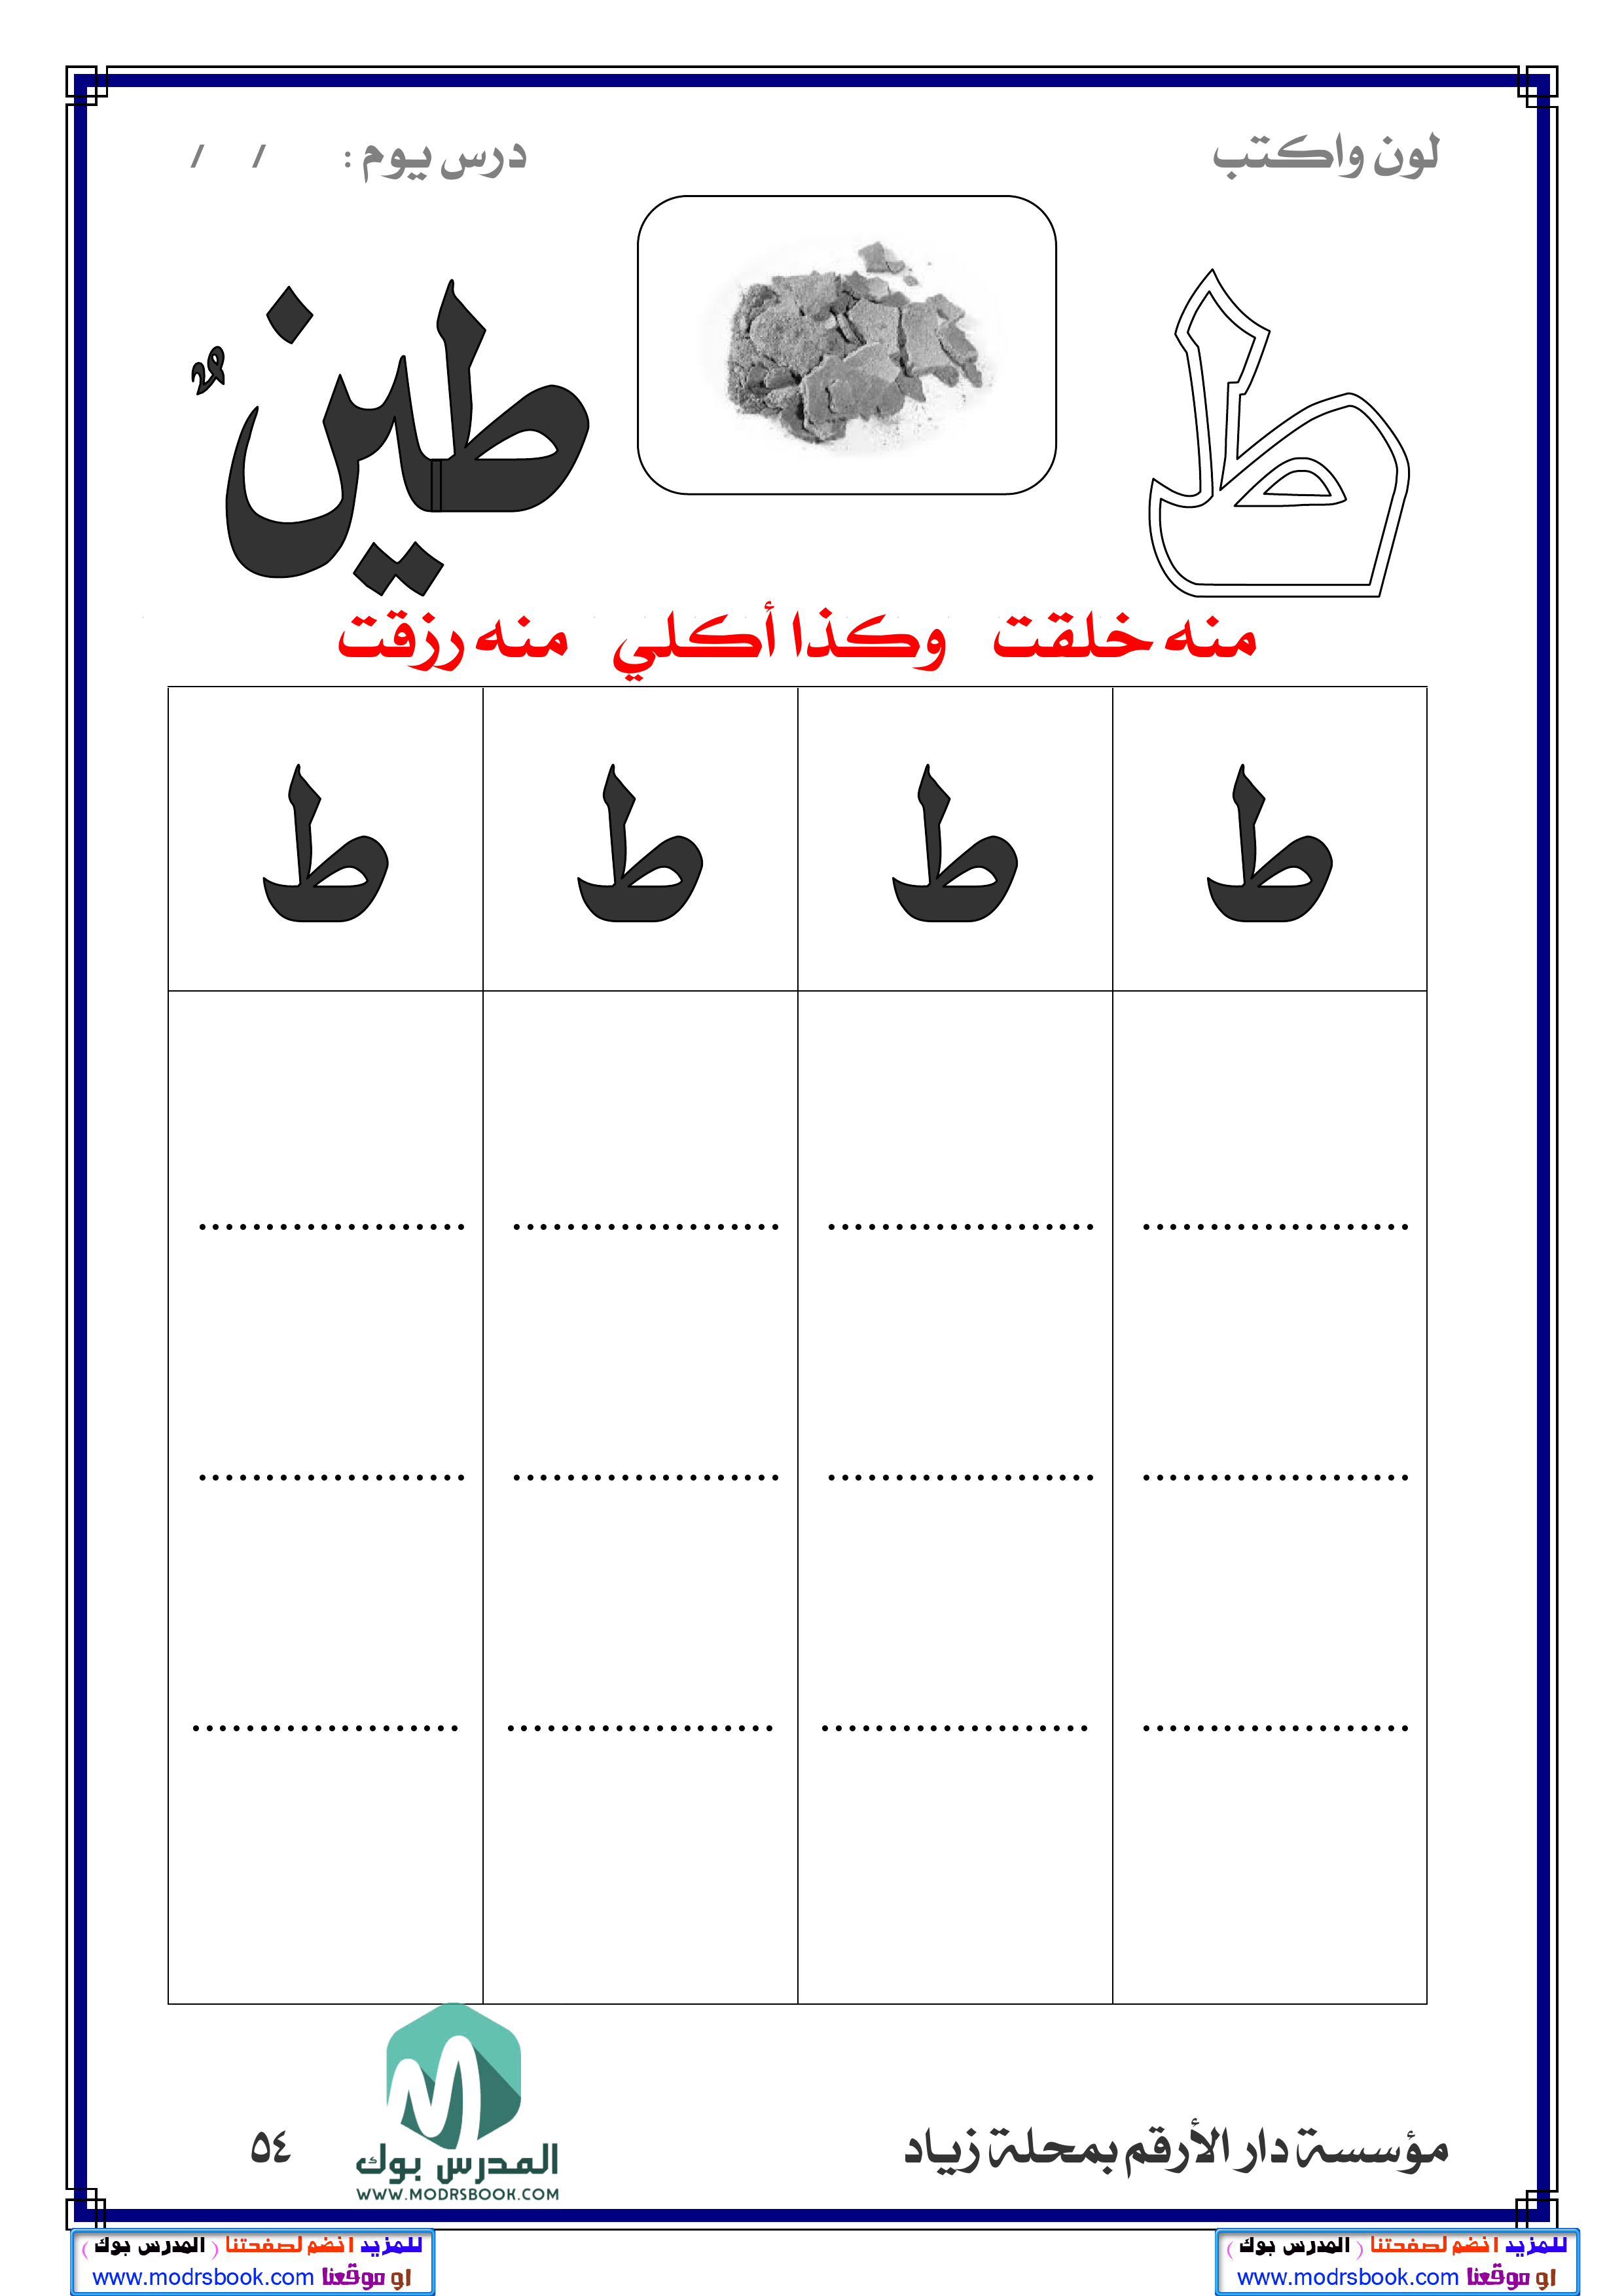 لون واكتب
درس يوم : / /
ط
طينٌ
منه خلقت وكذا أكلي منه رزقت
ط ط ط ط
.................... .................... .................... ....................
.................... .................... .................... ....................
.................... .................... .................... ....................
مؤسسة دار الأرقم بمحلة زياد
المدرس بوك
WWW.MODRSBOOK.COM
٥٤
للمزيد انضم لصفحتنا ( المدرس بوك )
او موقعنا www.modrsbook.com
للمزيد انضم لصفحتنا ( المدرس بوك )
او موقعنا www.modrsbook.com